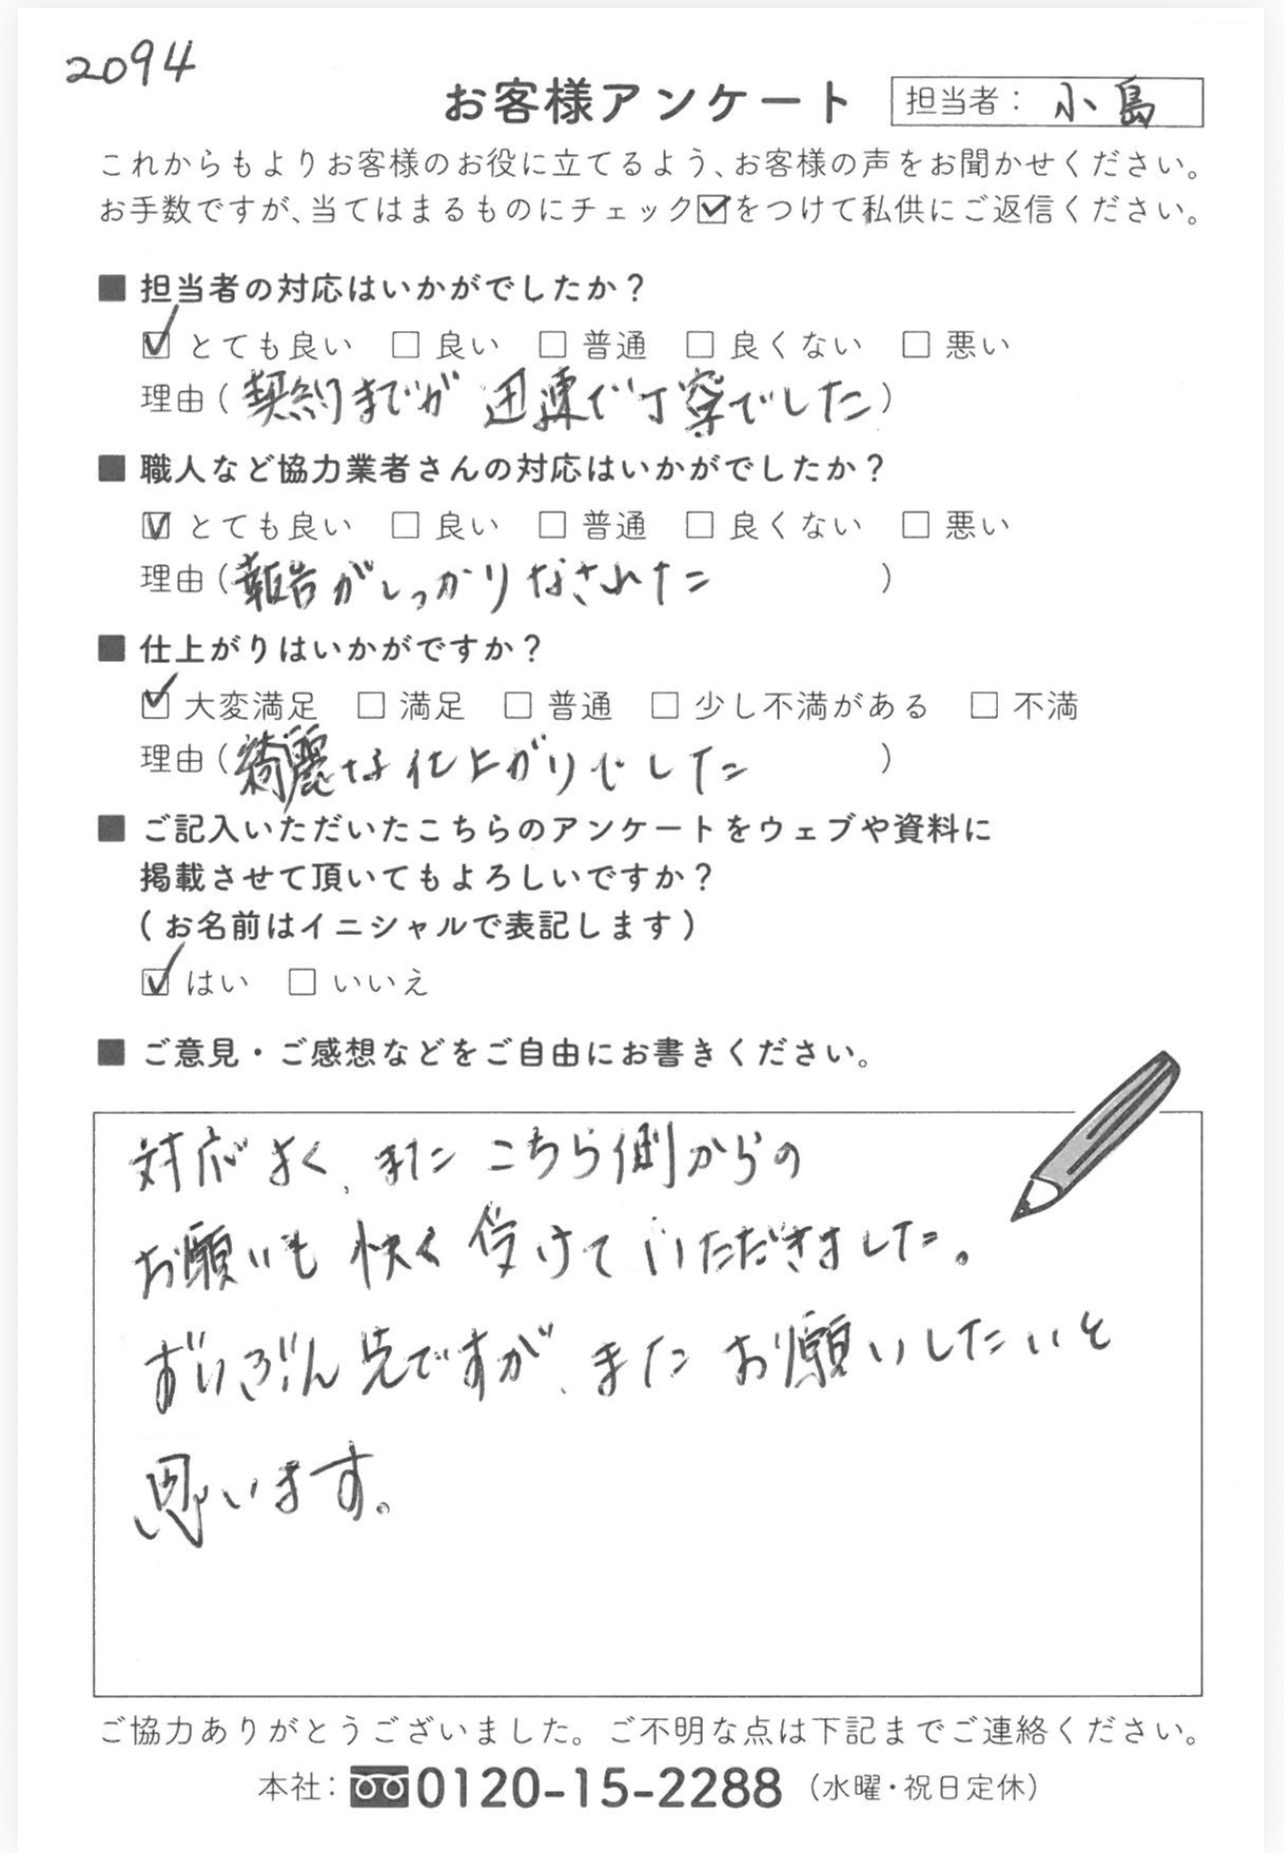 2094
お客様アンケート
担当者： 小島
これからもよりお客様のお役に立てるよう、お客様の声をお聞かせください。
お手数ですが、当てはまるものにチェック☑をつけて私供にご返信ください。
■ 担当者の対応はいかがでしたか？
☑ とても良い □ 良い □ 普通 □ 良くない □ 悪い
理由（契約までが 迅速で丁寧でした）
■ 職人など協力業者さんの対応はいかがでしたか？
☑ とても良い □ 良い □ 普通 □ 良くない □ 悪い
理由（報告がしっかりなされた）
■ 仕上がりはいかがですか？
☑ 大変満足 □ 満足 □ 普通 □ 少し不満がある □ 不満
理由（綺麗な仕上がりでした）
■ ご記入いただいたこちらのアンケートをウェブや資料に
掲載させて頂いてもよろしいですか？
（お名前はイニシャルで表記します）
☑ はい □ いいえ
■ ご意見・ご感想などをご自由にお書きください。
対応よく、また こちら側からの
お願いも 快く 受けて いただきました。
ずいぶん先ですが、また お願いしたいと
思います。
ご協力ありがとうございました。ご不明な点は下記までご連絡ください。
本社：0120-15-2288（水曜・祝日定休）